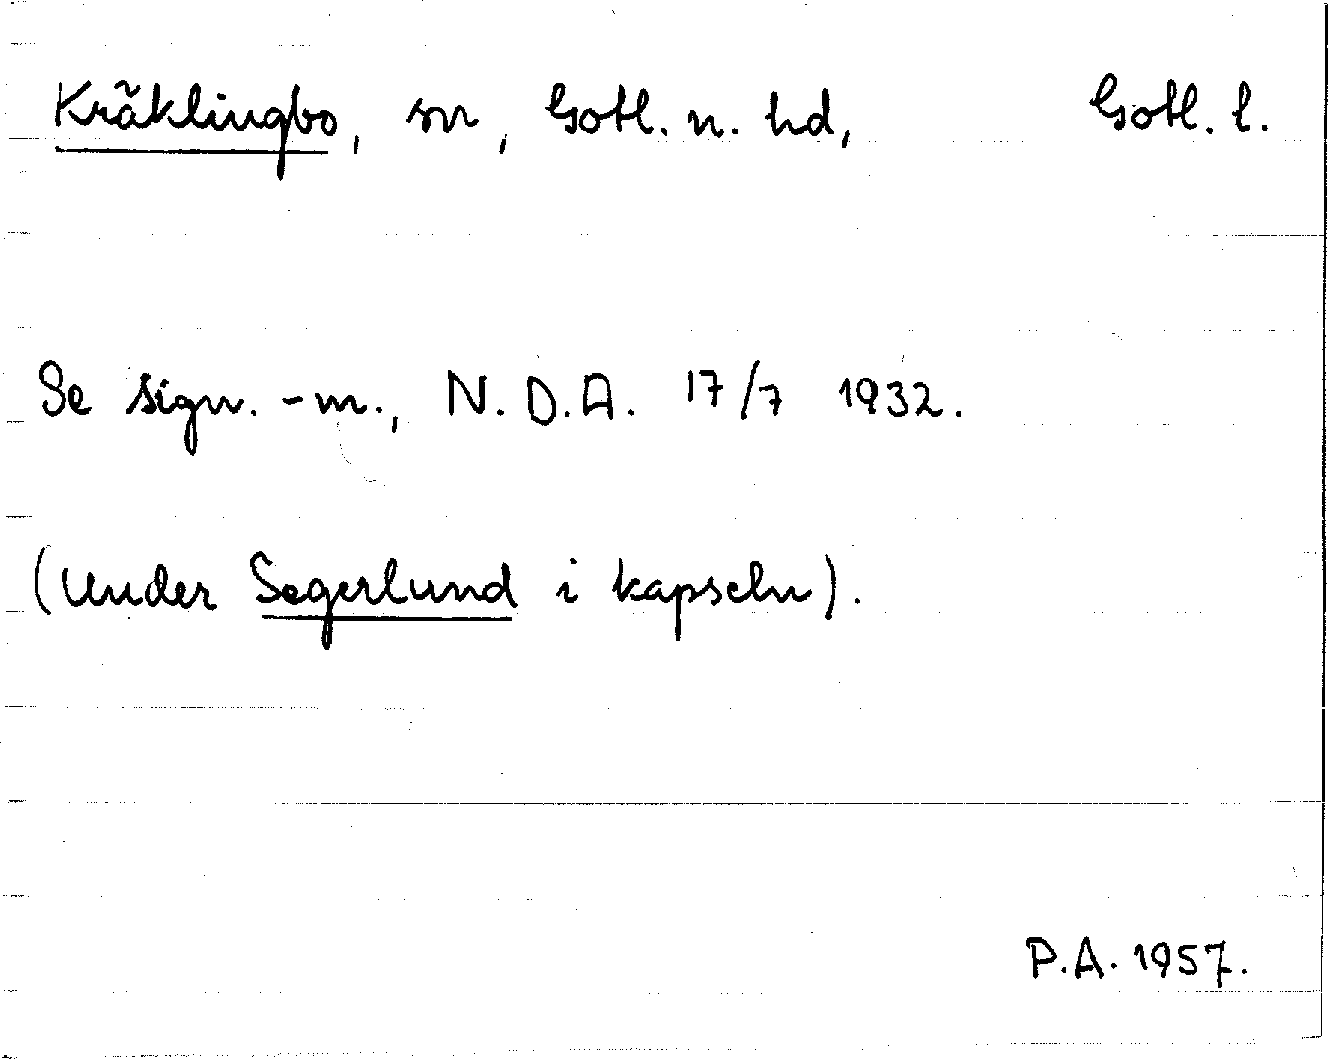 Kräklingbo, sn, Gotl. n. hd, Gotl. l.
Se sign. -m., N.D.A. 17/7 1932.
(Under Segerlund i kapseln).
P.A. 1957.